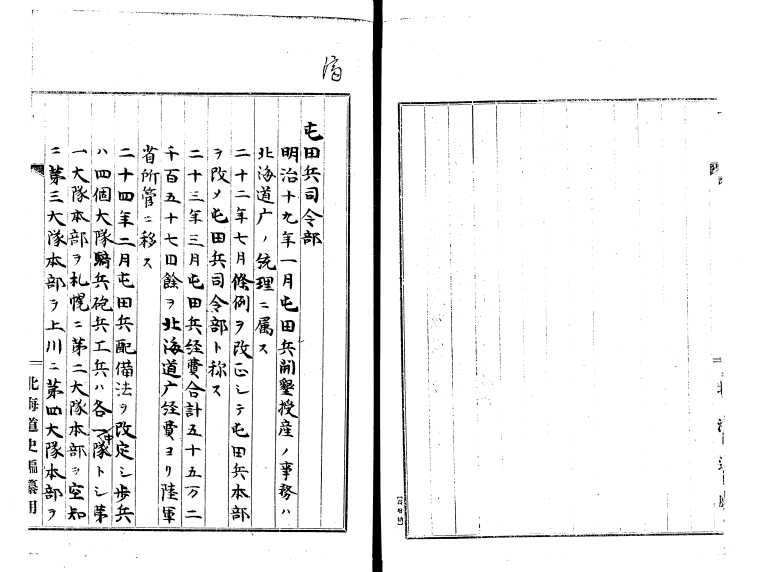 屯田兵司令部
明治十九年一月屯田兵開墾授産ノ事務ハ
北海道庁ノ統理ニ属ス
二十二年七月條例ヲ改正シテ屯田兵本部
ヲ改メ屯田兵司令部ト称ス
二十三年三月屯田兵経費合計五十五万二
千百五十七円餘ヲ北海道庁経費ヨリ陸軍
省所管ニ移ス
二十四年二月屯田兵配備法ヲ改定シ歩兵
ハ四個大隊騎兵砲兵工兵ハ各一隊トシ第
一大隊本部ヲ札幌ニ第二大隊本部ヲ空知
ニ第三大隊本部ヲ上川ニ第四大隊本部ヲ
北海道史編纂用